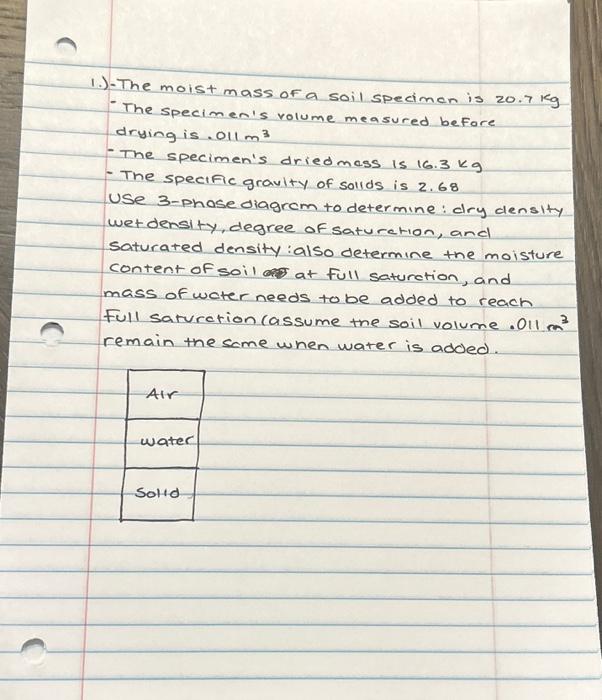 1.)-The moist mass of a soil specimen is 20.7 Kg
- The specimen's volume measured before
drying is .011 m³
- The specimen's dried mass is 16.3 kg
- The specific gravity of solids is 2.68
Use 3-phase diagram to determine: dry density
wet density, degree of saturation, and
saturated density: also determine the moisture
content of soil at full saturation, and
mass of water needs to be added to reach
full saturation (assume the soil volume .011 m³
remain the same when water is added.
Air
water
Solid